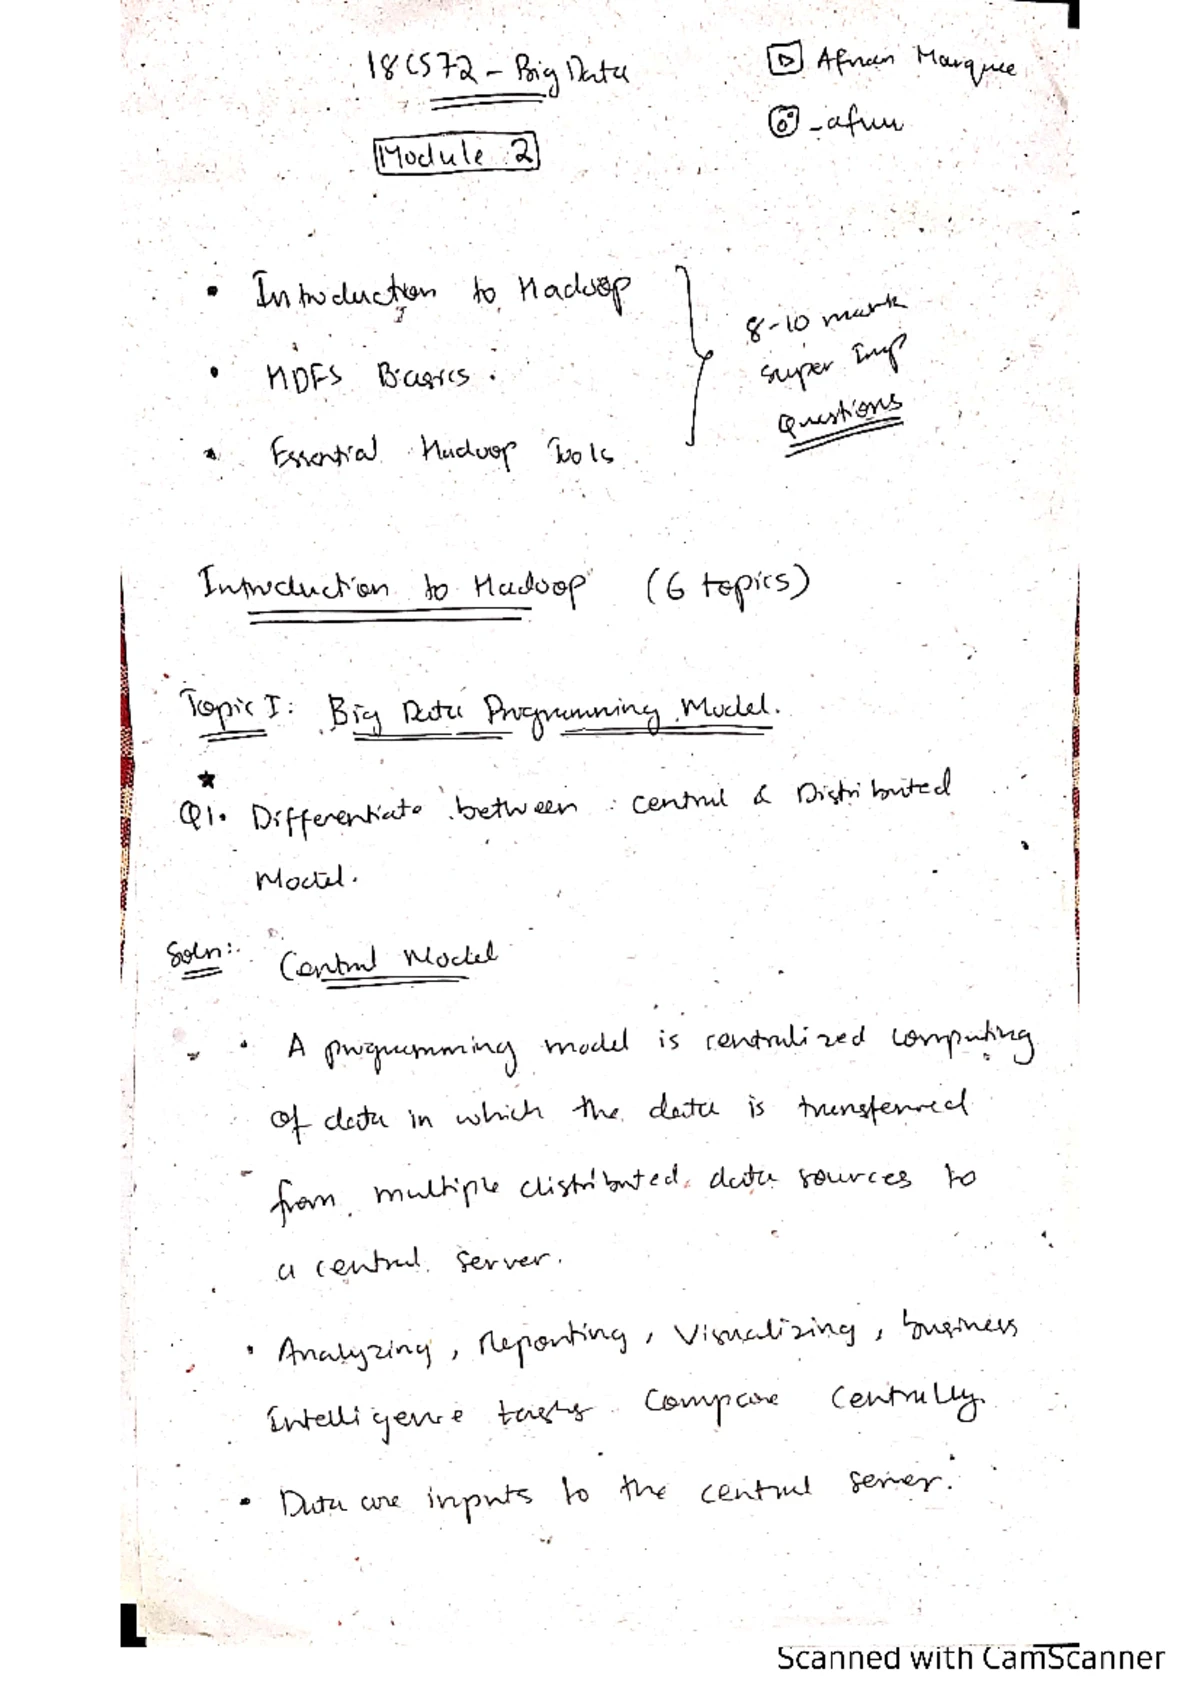 18CS72 - Big Data
Afnan Marquee
Module 2
_afnu
• Introduction to Hadoop
• HDFS Basics.
• Essential Hadoop Tools
8-10 mark
Super Imp
Questions
Introduction to Hadoop (6 topics)
Topic I: Big Data Programming Model.
★
Q1. Differentiate between central & Distributed
Model.
Soln:- Central Model
• A programming model is centralized computing
of data in which the data is transferred
from multiple distributed data sources to
a central server.
• Analyzing, Reporting, Visualizing, business
Intelligence tasks compare centrally.
• Data are inputs to the central server.
Scanned with CamScanner